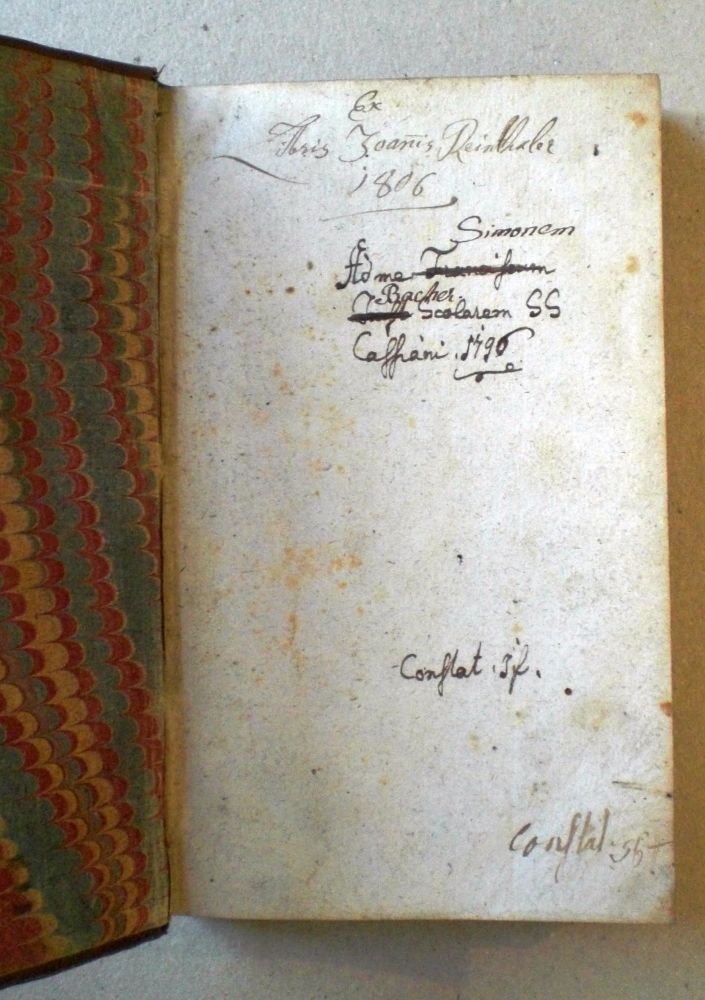 Ex
libris Joannis Reinthaler
1806
Simonem
Ad me Franciscum
Bacher
Scolarem SS
Cassiani 1796
Constat. 1f.
Constat. 56